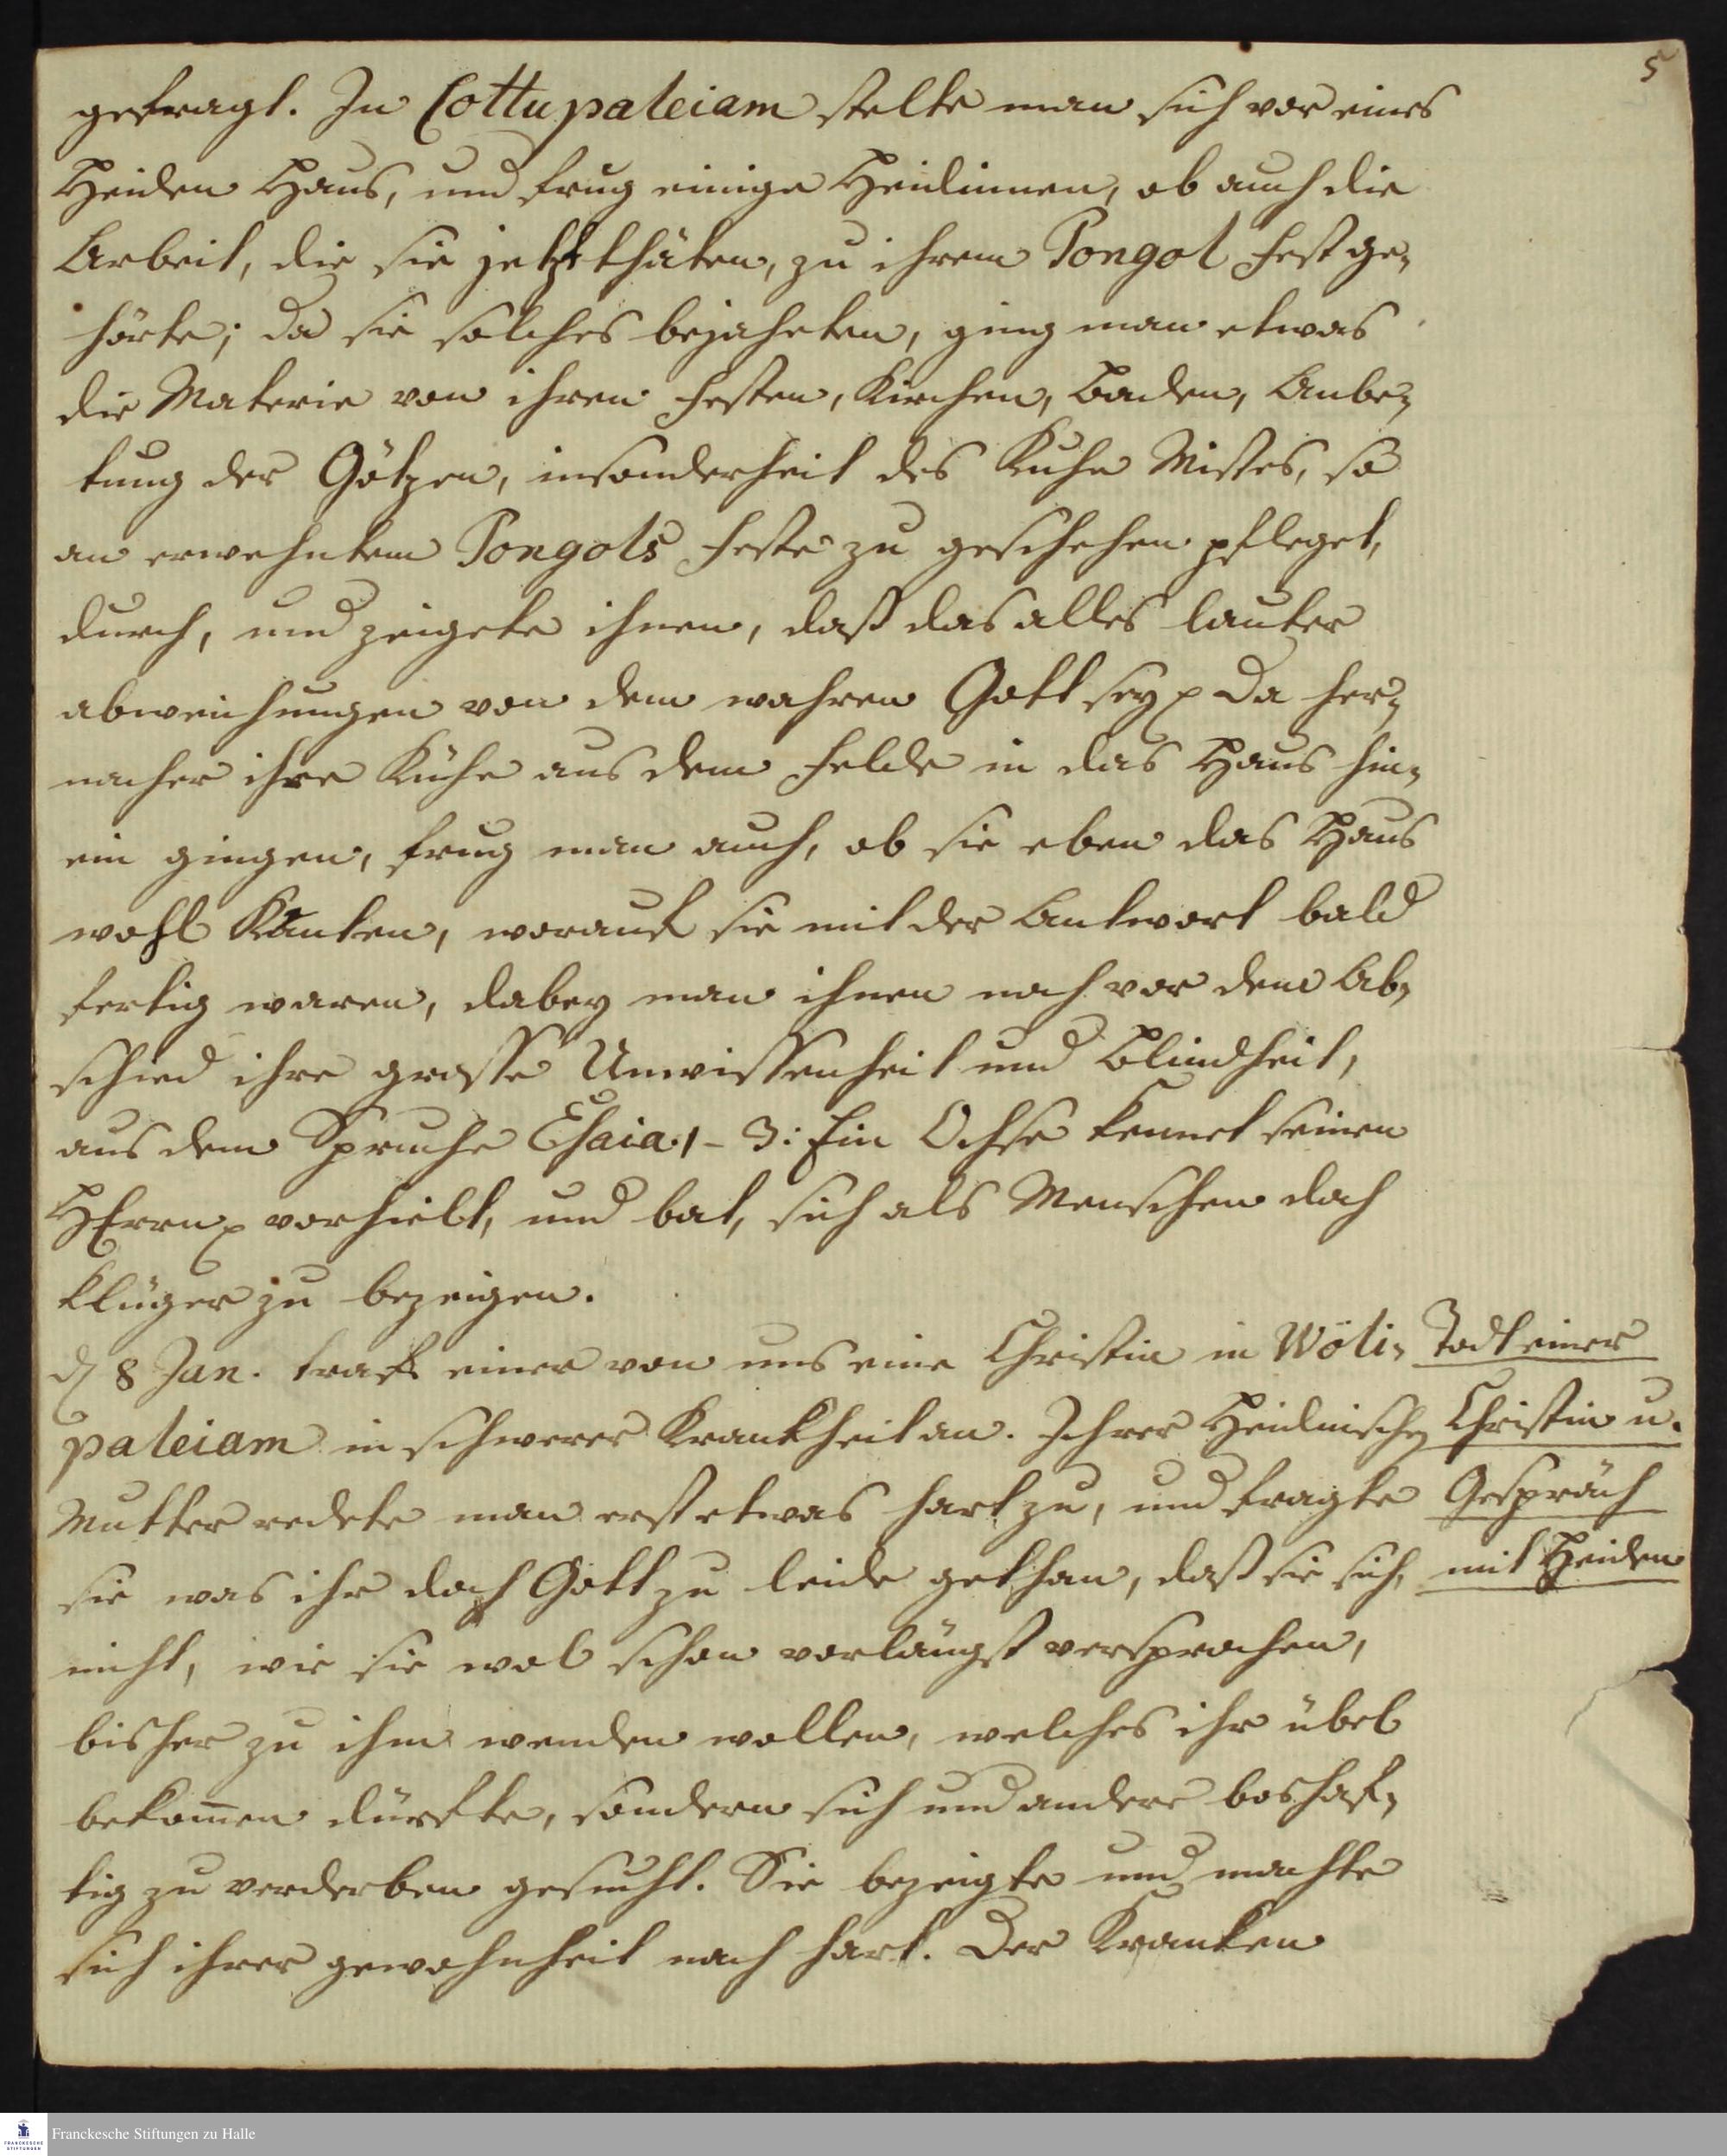 5
gefragt. In Cottupaleiam stelte man sich vor eines
Heiden Haus, und frug einige Heidinnen, ob auch die
Arbeit, die sie jetzt thäten, zu ihrem Pongol Fest ge-
hörte; da sie solches bejaheten, ging man etwas
die Materie von ihren Festen, Kirchen, Baden, Anbe-
tung der Götzen, insonderheit des Kuhe Mistes, so
an erwehntem Pongols Feste zu geschehen pfleget,
durch, und zeigete ihnen, daß das alles lauter
abweichungen von dem wahren Gott sey. Da her-
nacher ihre Kühe aus dem Felde in das Haus hin-
ein gingen, frug man auch, ob sie eben das Haus
wohl Kanten, worauf sie mit der Antwort bald
fertig waren, dabey man ihnen noch vor dem Ab-
schied ihre grosse Unwissenheit und Blindheit,
aus dem Spruche Esaia. 1 - 3: Ein Ochse kennet seinen
HErrn vorhielt, und bat, sich als Menschen doch
klüger zu bezeigen.
d 8 Jan. traf einer von uns eine Christin in Wöli-
paleiam in schwerer Krankheit an. Ihrer Heidnischen
Mutter redete man erst etwas hart zu, und fragte
sie was ihr doch Gott zu leide gethan, daß sie sich,
nicht, wie sie wol schon vorlängst versprochen,
bisher zu ihm wenden wollen, welches ihr übel
bekom̅en dürfte, sondern sich und andere boshaf-
tig zu verderben gesucht. Sie bezeigte und machte
sich ihrer gewohnheit nach hart. Der Kranken
Todt einer
Christin u.
Gespräch
mit Heiden
Franckesche Stiftungen zu Halle
FRANCKESCHE
STIFTUNGEN